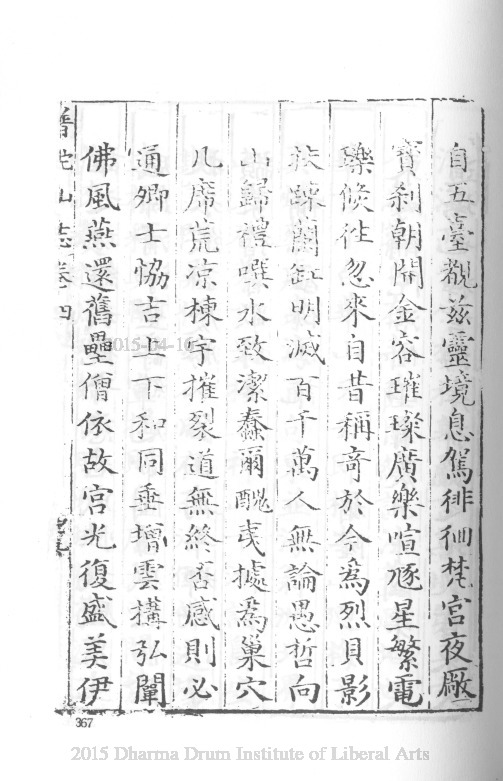 自五臺觀兹靈境息駕徘徊梵宮夜厰
寶刹朝開金容璀璨廣樂喧豗星繁電
爍倐徃忽來自昔稱奇於今爲烈貝影
扶踈蘭缸明滅百千萬人無論愚哲向
山歸禮噀水致潔蠢爾醜夷據爲巢穴
几席荒凉棟宇摧裂道無終否感則必
通卿士恊吉上下和同垂增雲搆弘闡
佛風燕還舊壘僧依故宮光復盛美伊
普陀山志卷四
367
2015-04-10
2015 Dharma Drum Institute of Liberal Arts